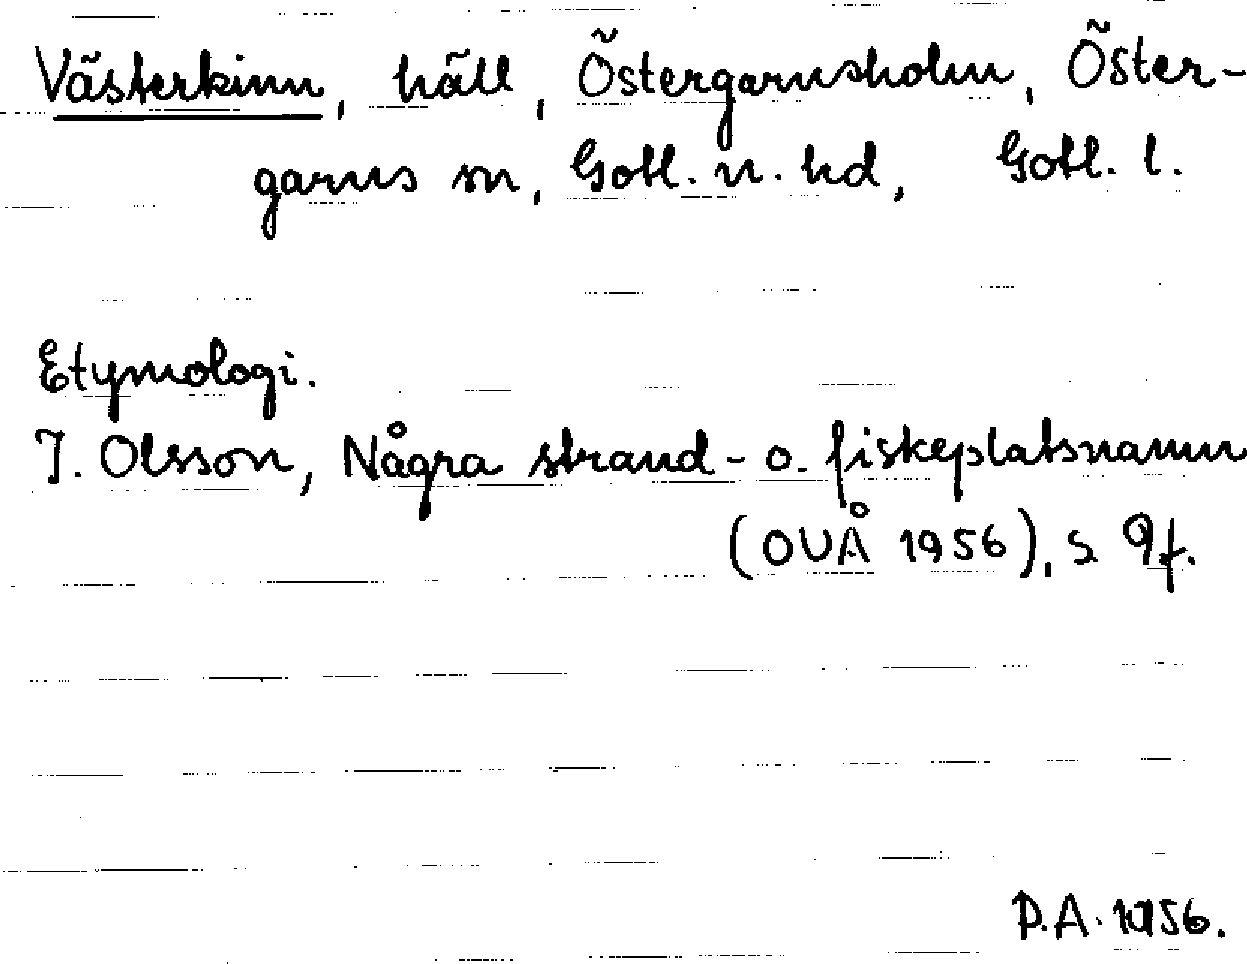 Västerkinn, häll, Östergarnsholm, Öster-
garns sn, Gotl. n. hd, Gotl. l.
Etymologi.
I. Olsson, Några strand- o. fiskeplatsnamn
(OUÅ 1956), s 9f.
P.A. 1956.